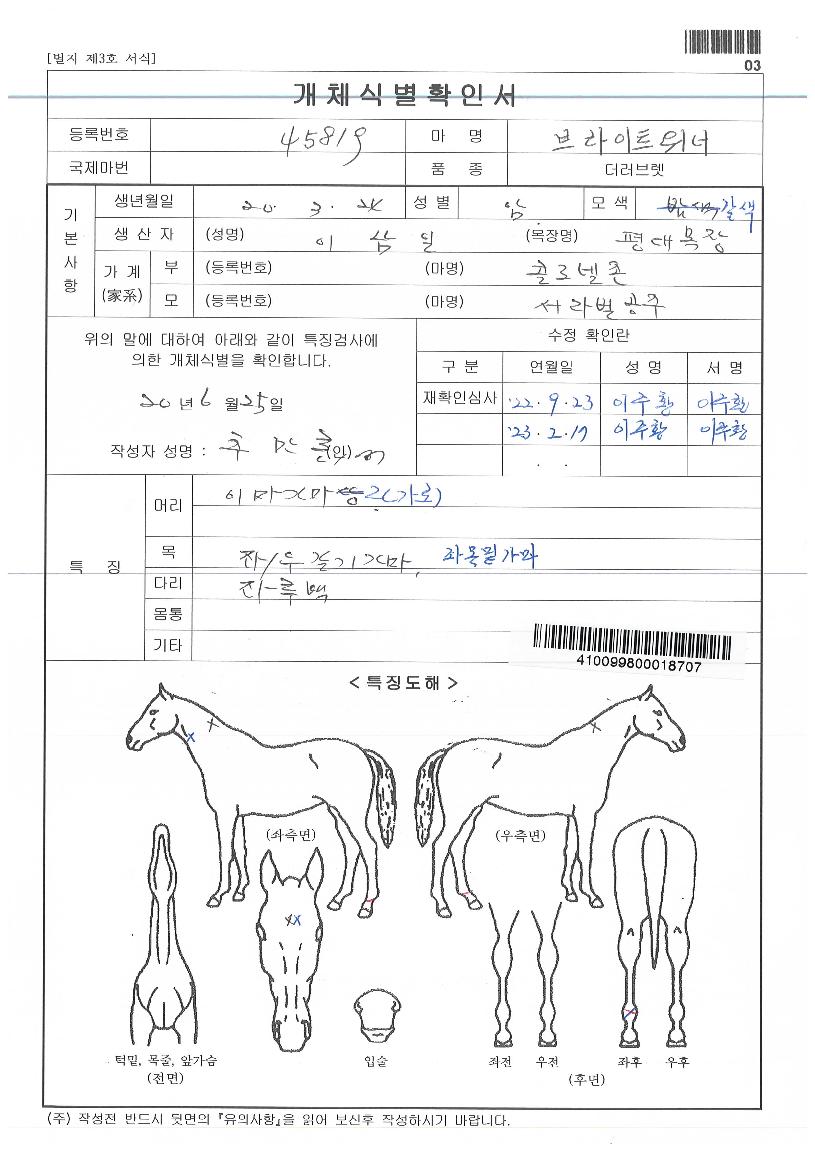 [별지 제3호 서식]
03
개체식별확인서
등록번호 45819 마 명 브라이트위너
국제마번 품 종 더러브렛
기본사항
생년월일 20. 3. 24 성별 암 모색 밤색 갈색
생산자 (성명) 이삼일 (목장명) 평대목장
가계(家系) 부 (등록번호) (마명) 콜로넬존
모 (등록번호) (마명) 서라벌공주
위의 말에 대하여 아래와 같이 특징검사에
의한 개체식별을 확인합니다.
20년 6월 25일
작성자 성명 : (인)
수정 확인란
구 분 연월일 성 명 서 명
재확인심사 '22. 9. 23 이주환 이주환
'23. 2. 17 이주환 이주환
. .
특 징
머리 이마가마 2(가로)
목 좌/우 갈기가마, 좌목밑가마
다리
몸통
기타
410099800018707
< 특징도해 >
(좌측면) (우측면)
턱밑, 목줄, 앞가슴 입술 좌전 우전 좌후 우후
(전면) (후면)
(주) 작성전 반드시 뒷면의 『유의사항』을 읽어 보신후 작성하시기 바랍니다.